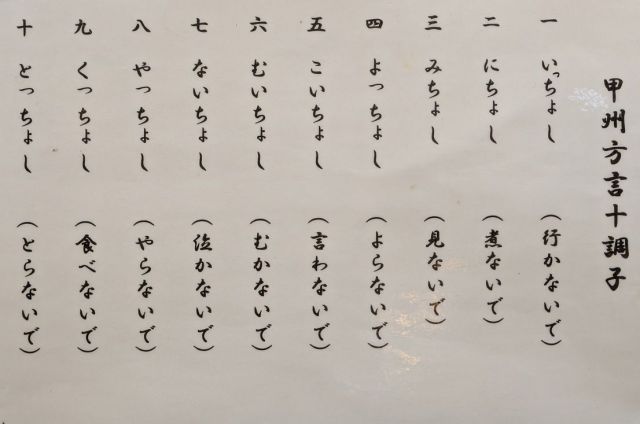 甲州方言十調子
一 いっちょし (行かないで)
二 にちょし (煮ないで)
三 みちょし (見ないで)
四 よっちょし (よらないで)
五 こいちょし (言わないで)
六 むいちょし (むかないで)
七 ないちょし (泣かないで)
八 やっちょし (やらないで)
九 くっちょし (食べないで)
十 とっちょし (とらないで)